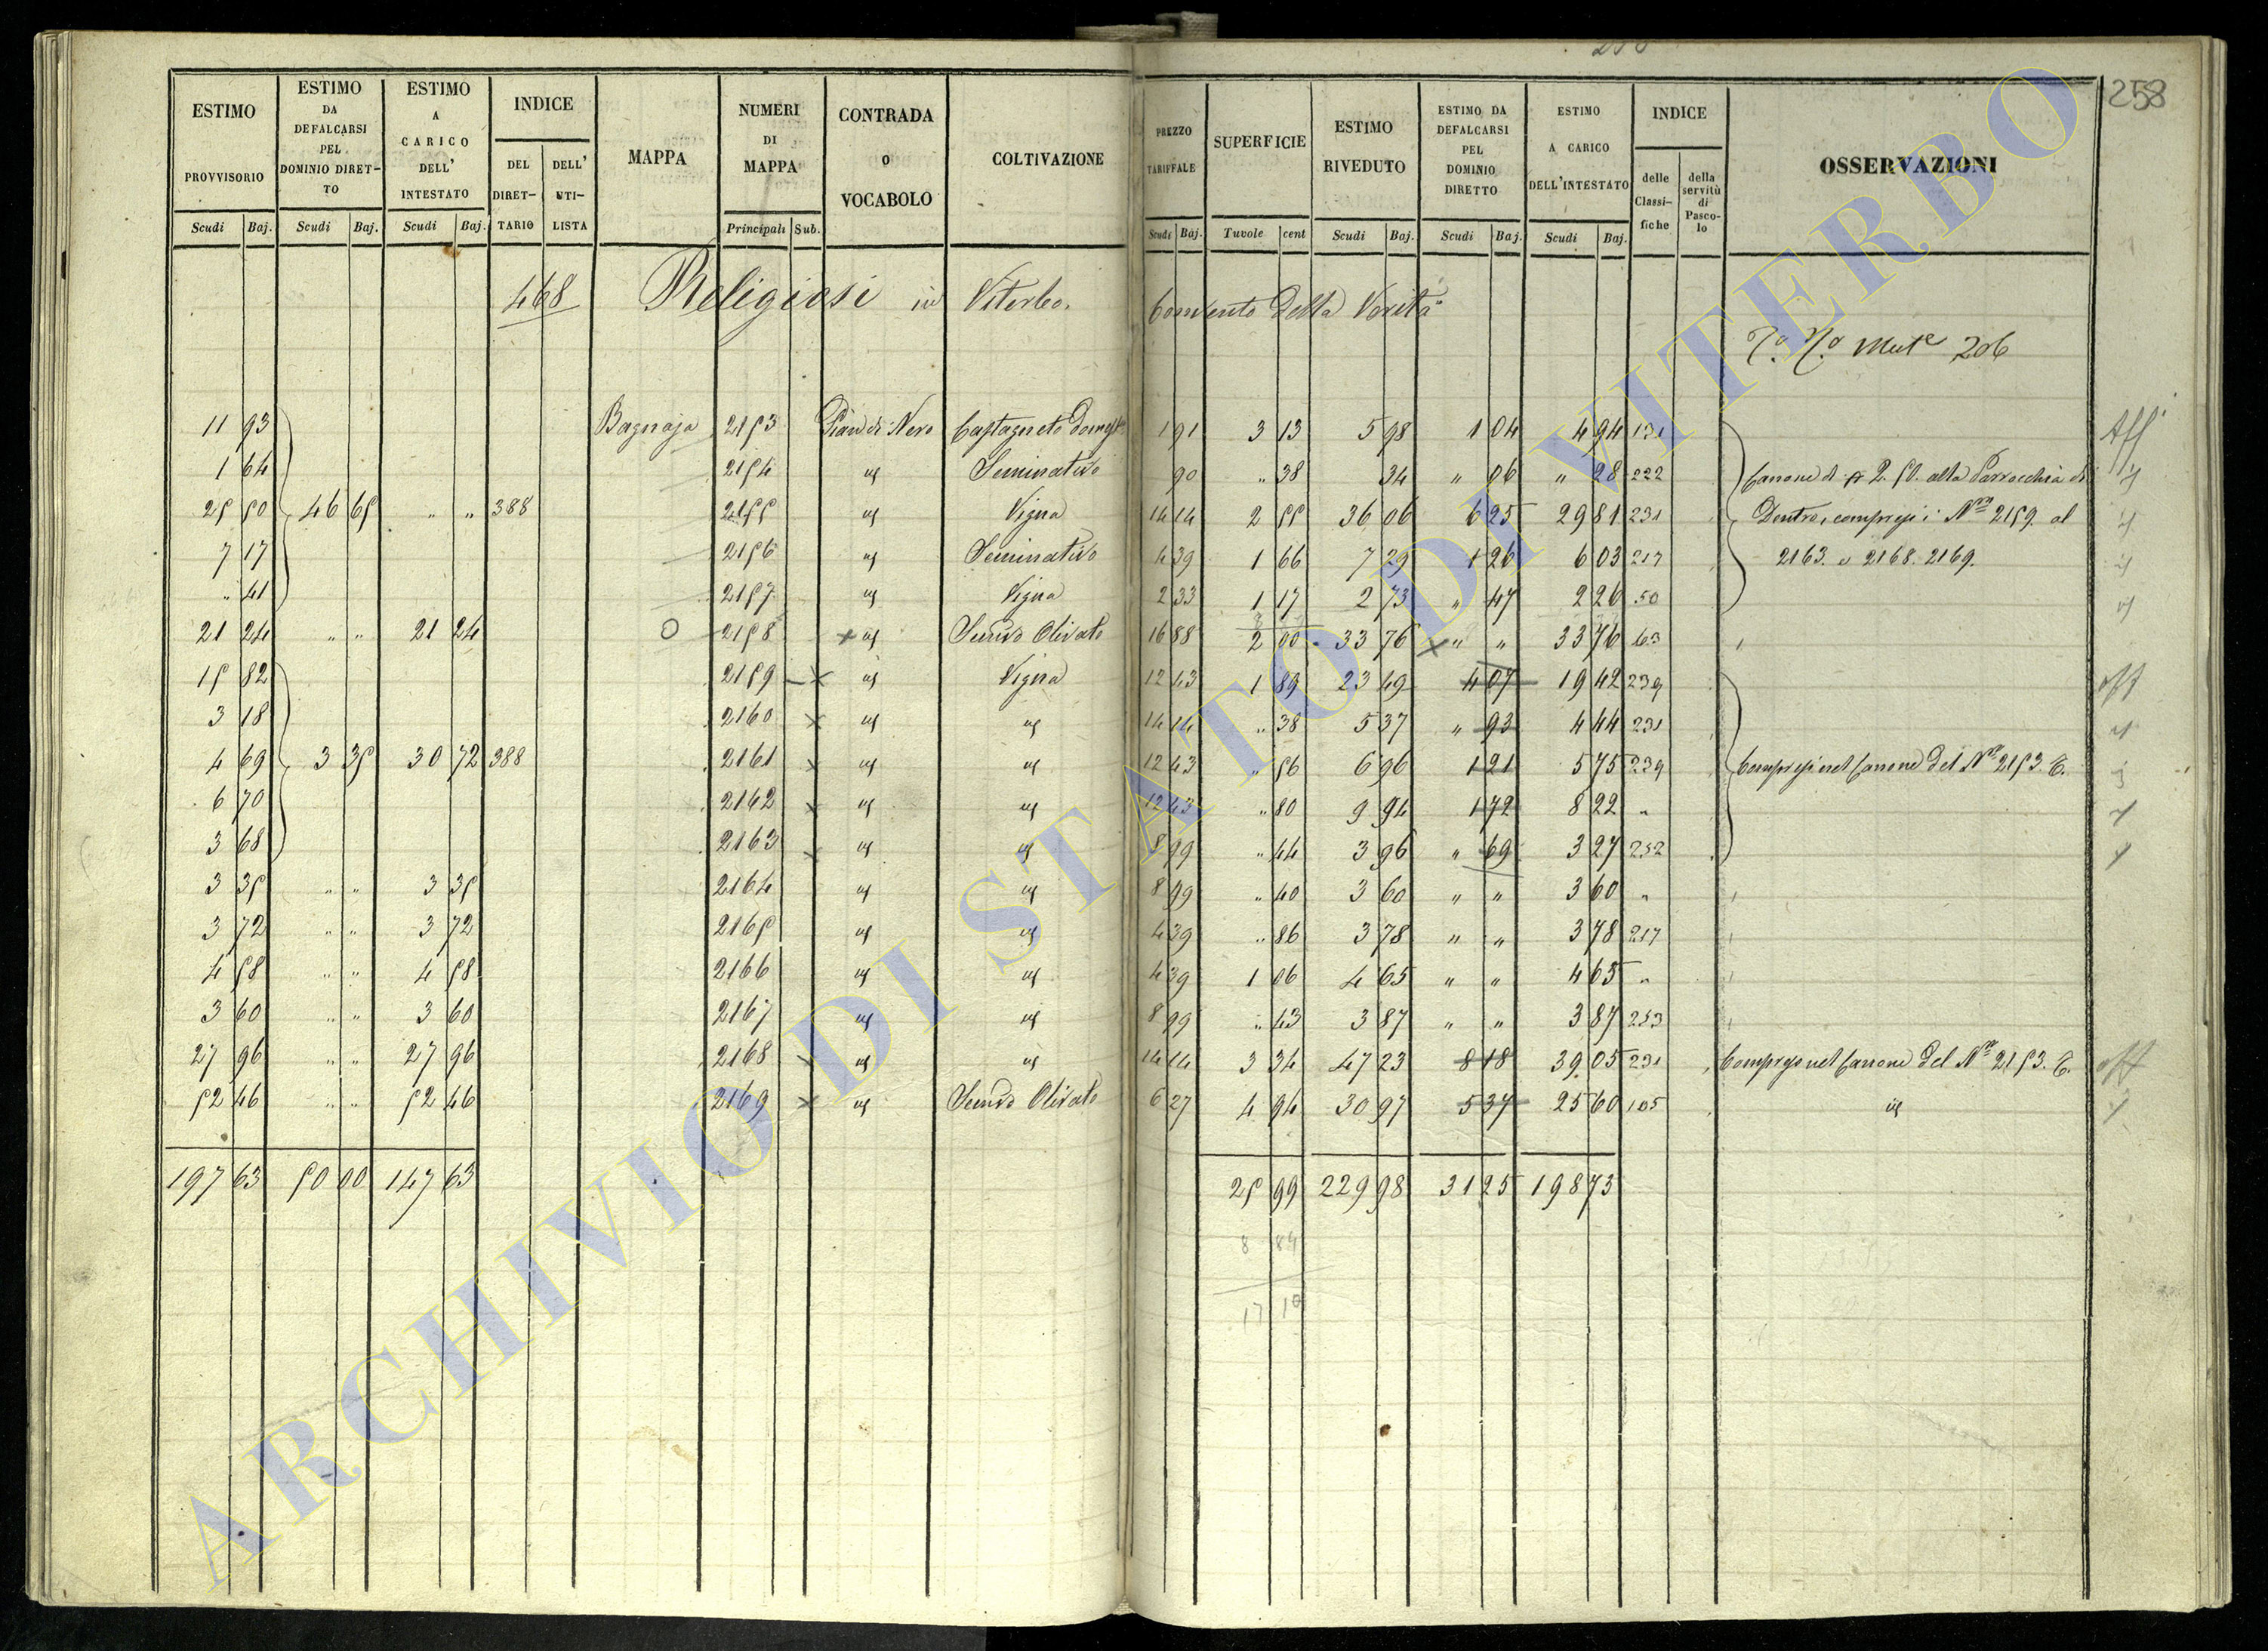 258
ESTIMO PROVVISORIO Scudi Baj.
ESTIMO DA DEFALCARSI PEL DOMINIO DIRETTO Scudi Baj.
ESTIMO A CARICO DELL' INTESTATO Scudi Baj.
INDICE DEL DIRETTARIO DELL' UTILISTA
MAPPA
NUMERI DI MAPPA Principali Sub.
CONTRADA O VOCABOLO
COLTIVAZIONE
PREZZO TARIFFALE Scudi Baj.
SUPERFICIE Tavole cent
ESTIMO RIVEDUTO Scudi Baj.
ESTIMO DA DEFALCARSI PEL DOMINIO DIRETTO Scudi Baj.
ESTIMO A CARICO DELL'INTESTATO Scudi Baj.
INDICE delle Classifiche della servitù di Pascolo
OSSERVAZIONI
468 Religiosi in Viterbo. Convento Della Verità
206
11 93 Bagnaja 2153 Pian di Nero Castagneto Domest 1 91 3 13 5 98 1 04 4 94 131 Aff
1 64 2154 id Seminativo 90 " 38 34 " 06 " 28 222 Canone di 2.50. alla Parrocchia di id
25 50 46 65 " " 388 2155 id Vigna 14 14 2 55 36 06 6 25 29 81 231 Dentro, compresi i Nri 2159. al id
7 17 2156 id Seminativo 4 39 1 66 7 29 1 26 6 03 217 2163. e 2168. 2169. id
" 41 2157 id Vigna 2 33 1 17 2 73 " 47 2 26 50 id
21 24 " " 21 24 O 2158 x id Semivo Olivato 16 88 2 00 33 76 x " " 33 76 63
15 82 2159 x id Vigna 12 43 1 89 23 49 4 07 19 42 239 aff
3 18 2160 x id id 14 14 " 38 5 37 " 93 4 44 231 id
4 69 3 35 30 72 388 2161 x id id 12 43 " 56 6 96 1 21 5 75 239 Compresi nel Canone del Nro 2153. E.
6 70 2162 x id id 12 43 " 80 9 94 1 72 8 22 " id
3 68 2163 x id id 8 99 " 44 3 96 " 69 3 27 252 id
3 35 " " 3 35 2164 id id 8 99 " 40 3 60 " " 3 60 "
3 72 " " 3 72 2165 id id 4 39 " 86 3 78 " " 3 78 217
4 58 " " 4 58 2166 id id 4 39 1 06 4 65 " " 4 65 "
3 60 " " 3 60 2167 id id 8 99 " 43 3 87 " " 3 87 253
27 96 " " 27 96 2168 x id id 14 14 3 34 47 23 8 18 39 05 231 Compreso nel Canone del Nro 2153. E. aff
52 46 " " 52 46 2169 x id Semivo Olivato 6 27 4 94 30 97 5 37 25 60 105 id id
197 63 50 00 147 63 25 99 229 98 31 25 198 73
8 84
17 10
ARCHIVIO DI STATO DI VITERBO